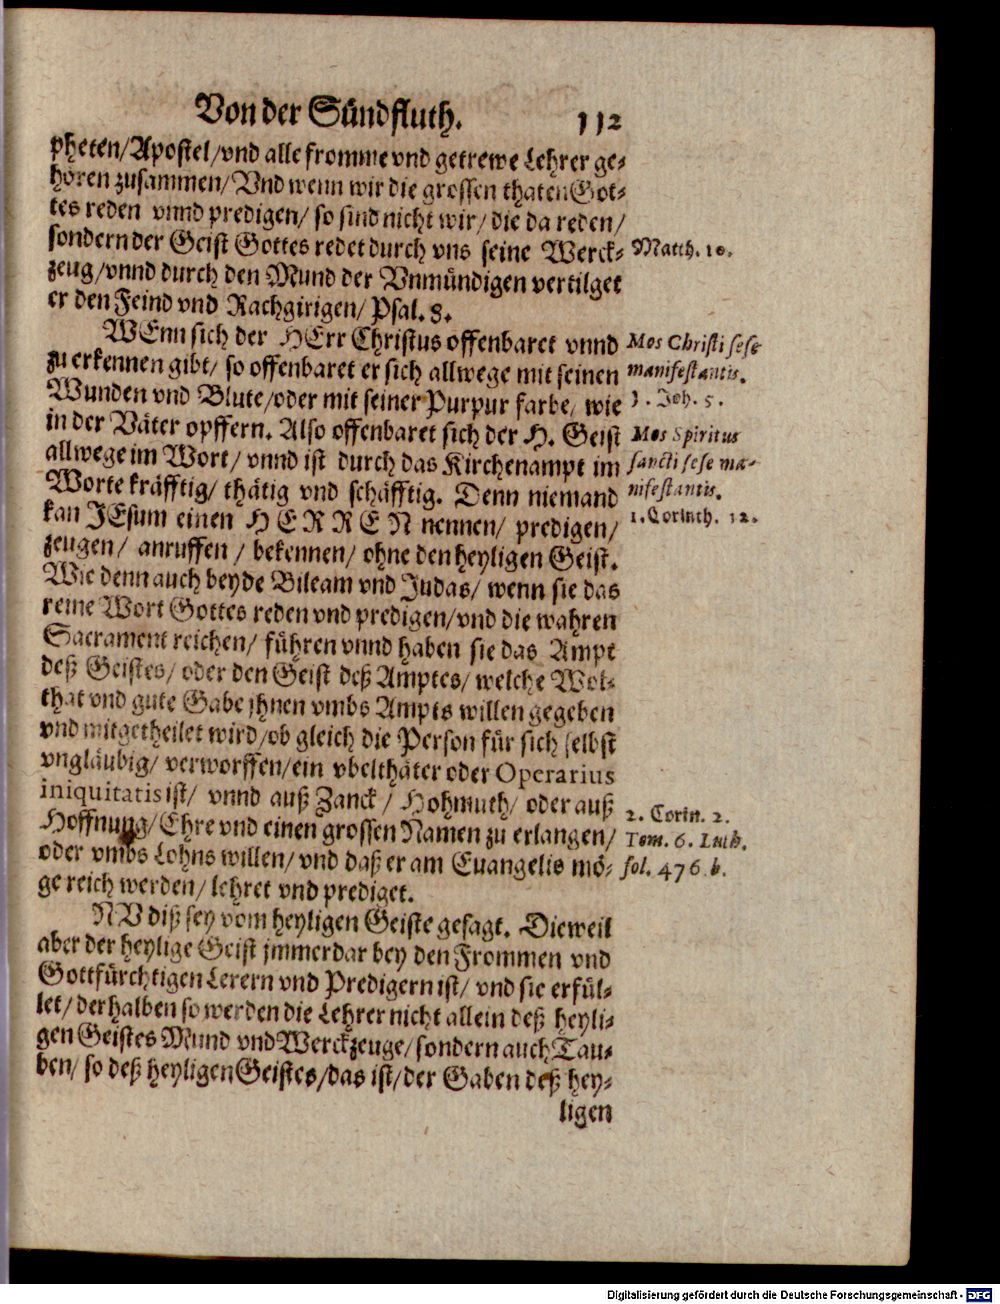 Von der Sündfluth. 112
pheten/Apostel/vnd alle fromme vnd getrewe Lehrer ge-
hören zusammen/Vnd wenn wir die grossen thaten Got-
tes reden vnnd predigen/ so sind nicht wir/ die da reden/
sondern der Geist Gottes redet durch vns seine Werck-
Matth. 10.
zeug/vnnd durch den Mund der Vnmündigen vertilget
er den Feind vnd Rachgirigen/ Psal. 8.
WEnn sich der HErr Christus offenbaret vnnd
Mos Christi sese
zu erkennen gibt/ so offenbaret er sich allwege mit seinen
manifestantis.
Wunden vnd Blute/oder mit seiner Purpur farbe/ wie
1. Joh. 5.
in der Väter opffern. Also offenbaret sich der H. Geist
Mos Spiritus
allwege im Wort/ vnnd ist durch das Kirchenampt im
sancti sese ma-
Worte kräfftig/ thätig vnd schäfftig. Denn niemand
nifestantis.
kan JEsum einen HERREN nennen/ predigen/
1. Corinth. 12.
zeugen/ anruffen / bekennen/ ohne den heyligen Geist.
Wie denn auch beyde Bileam vnd Judas/ wenn sie das
reine Wort Gottes reden vnd predigen/vnd die wahren
Sacrament reichen/ führen vnnd haben sie das Ampt
deß Geistes/ oder den Geist deß Amptes/ welche Wol-
that vnd gute Gabe jhnen vmbs Ampts willen gegeben
vnd mitgetheilet wird/ob gleich die Person für sich selbst
vngläubig/ verworffen/ein vbelthäter oder Operarius
iniquitatis ist/ vnnd auß Zanck / Hohmuth/ oder auß
2. Corin. 2.
Hoffnung/Ehre vnd einen grossen Namen zu erlangen/
Tom. 6. Luth.
oder vmbs Lohns willen/ vnd daß er am Euangelio mö-
fol. 476. b.
ge reich werden/ lehret vnd prediget.
NV diß sey vom heyligen Geiste gesagt. Dieweil
aber der heylige Geist jmmerdar bey den Frommen vnd
Gottfürchtigen Lerern vnd Predigern ist/ vnd sie erfül-
let/ derhalben so werden die Lehrer nicht allein deß heyli-
gen Geistes Mund vnd Werckzeuge/ sondern auch Tau-
ben/ so deß heyligen Geistes/das ist/der Gaben deß hey-
ligen
Digitalisierung gefördert durch die Deutsche Forschungsgemeinschaft - DFG